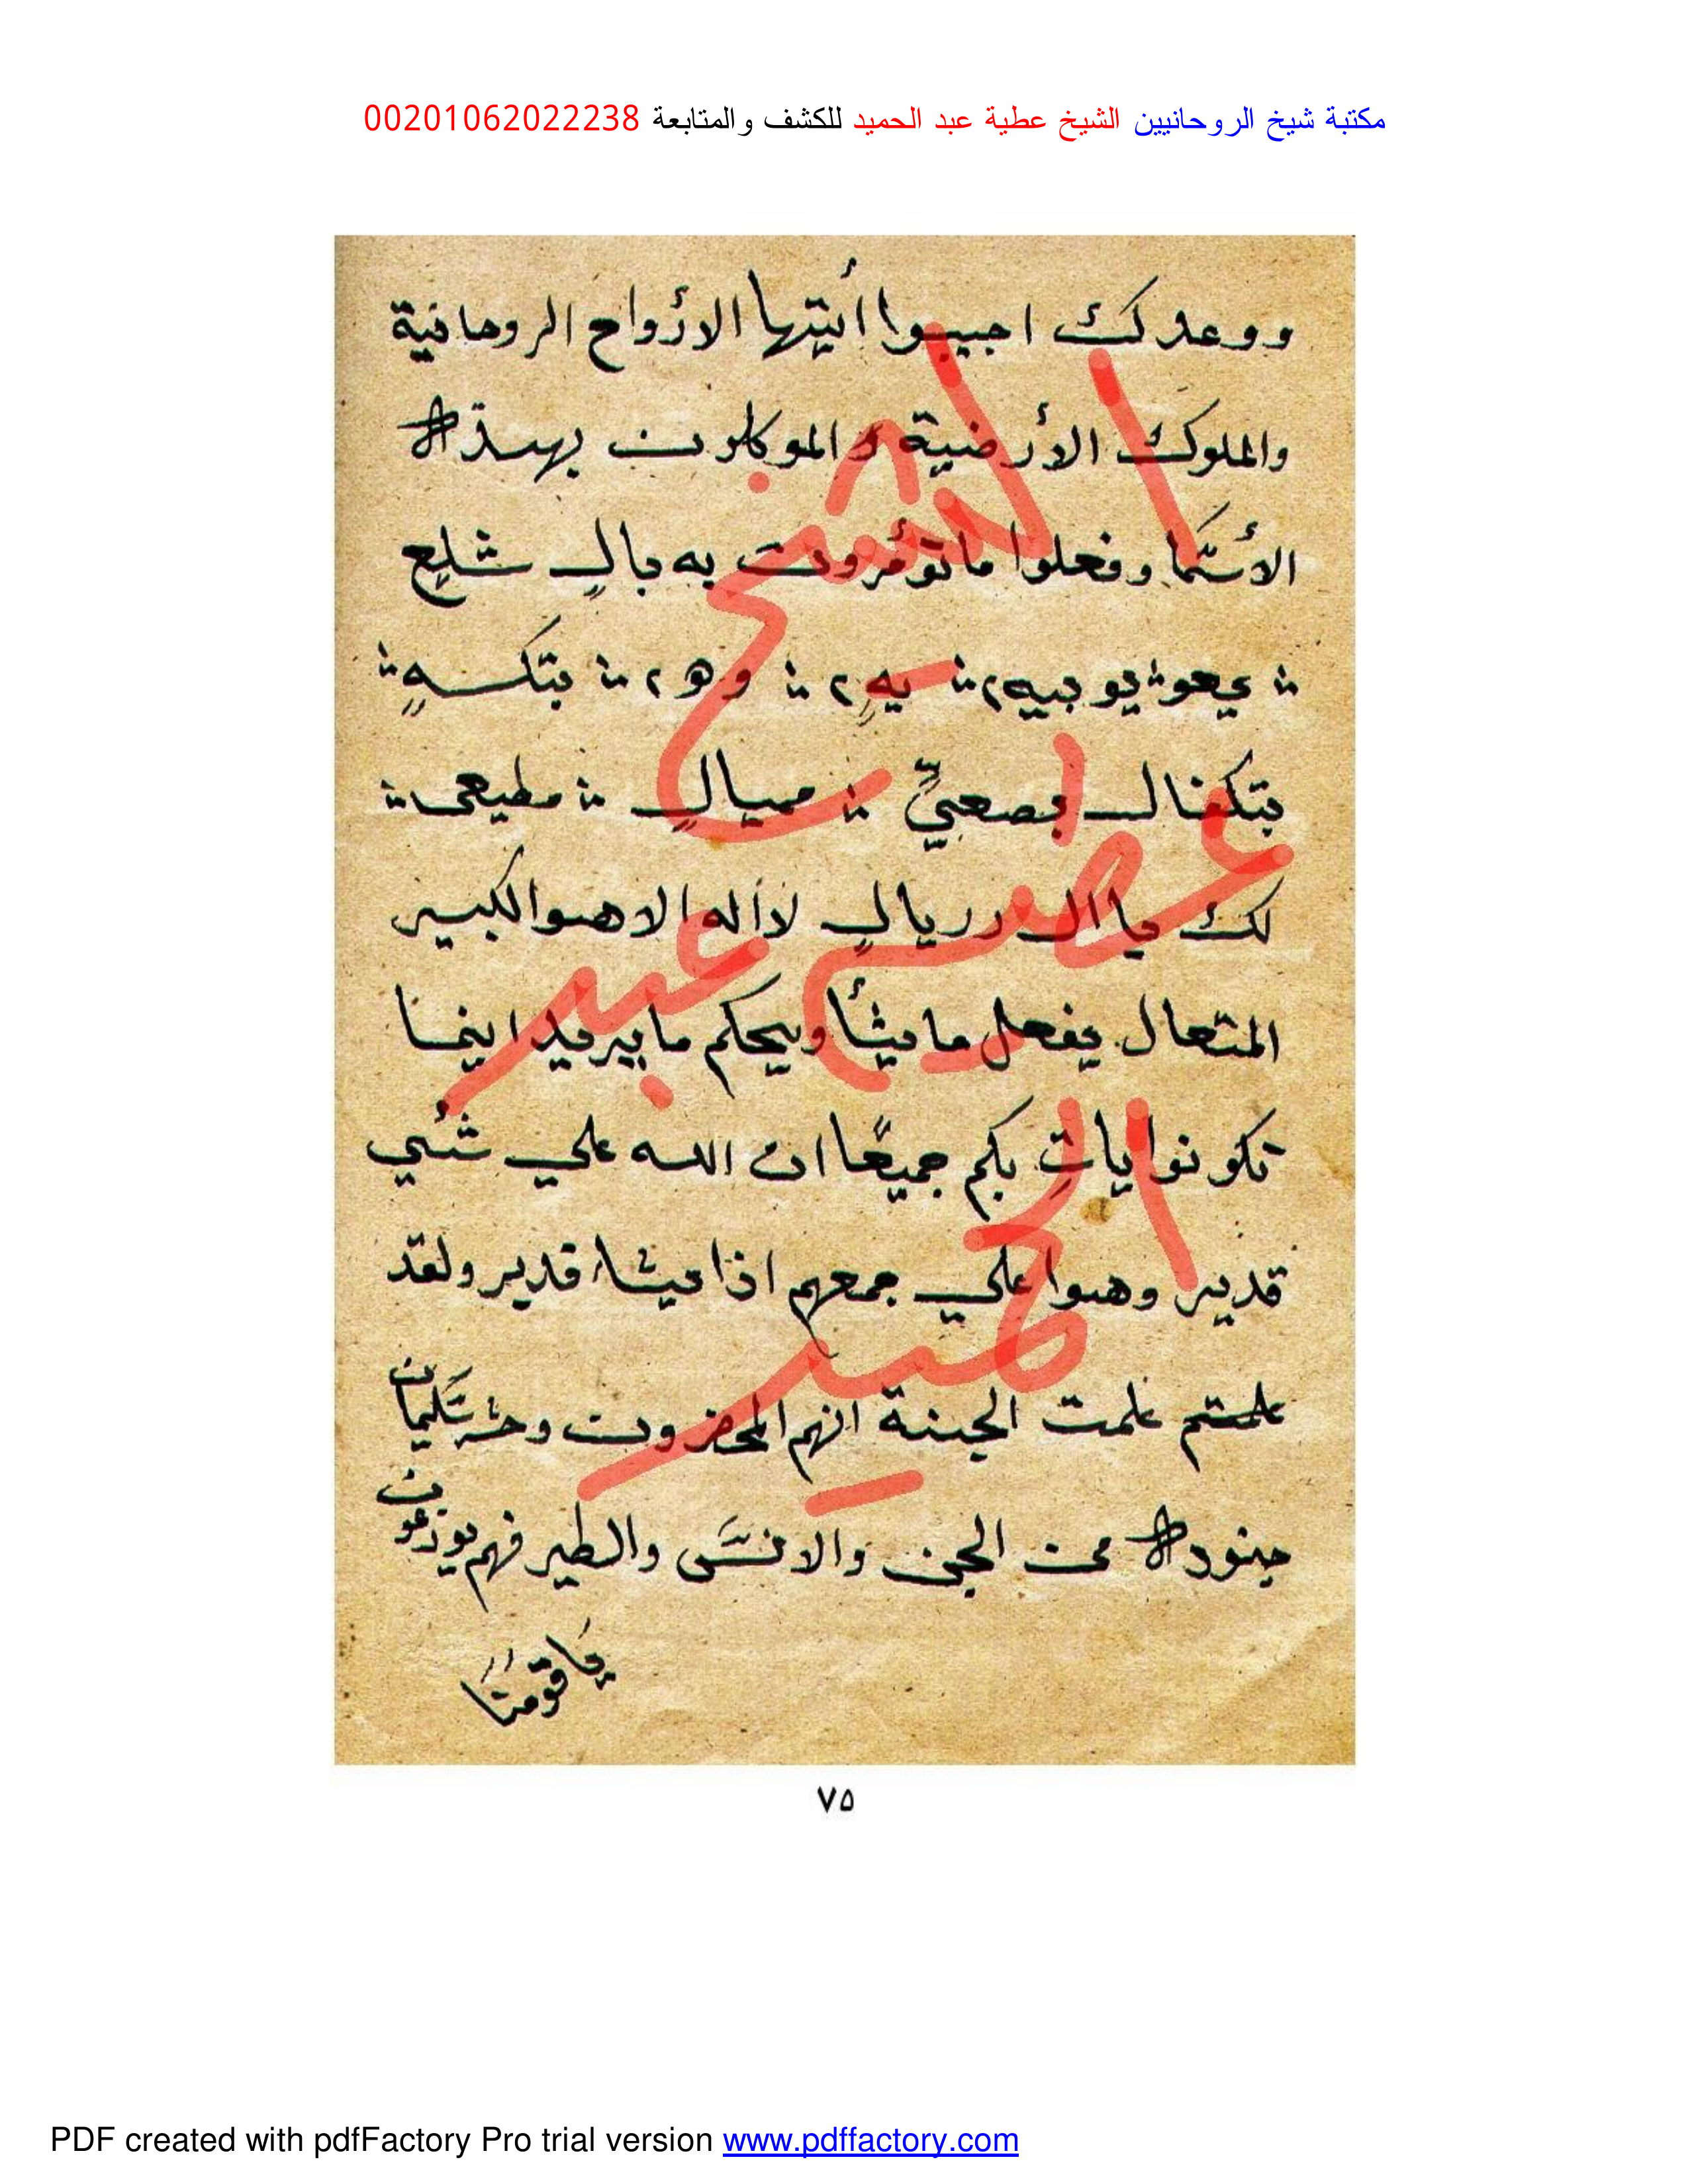 مكتبة شيخ الروحانيين الشيخ عطية عبد الحميد للكشف والمتابعة 00201062022238
ووعدك اجيبوا أيتها الأرواح الروحانية
والملوك الأرضية و الموكلون بهذه
الأسما وفعلوا ما تؤمرون به بالٍ شلع
بتكفال بصعيٍّ ميالٍ مطيعى
لك يا ال رريالٍ لااله الا هوا الكبير
المتعال يفعل ما يشأ ويحكم ما يريد اينما
تكونوا ياتِ بكم جميعًا ان الله علي شئي
قدير وهوا علي جمعهم اذا يشاء قدير ولقد
علمتم علمت الجنة انهم المحضرون وحشر سليمان
جنوده من الجن والانس والطير فهم يوزعون
يا قومنا
٧٥
الشيخ
عطيه عبد
الحميد
PDF created with pdfFactory Pro trial version www.pdffactory.com